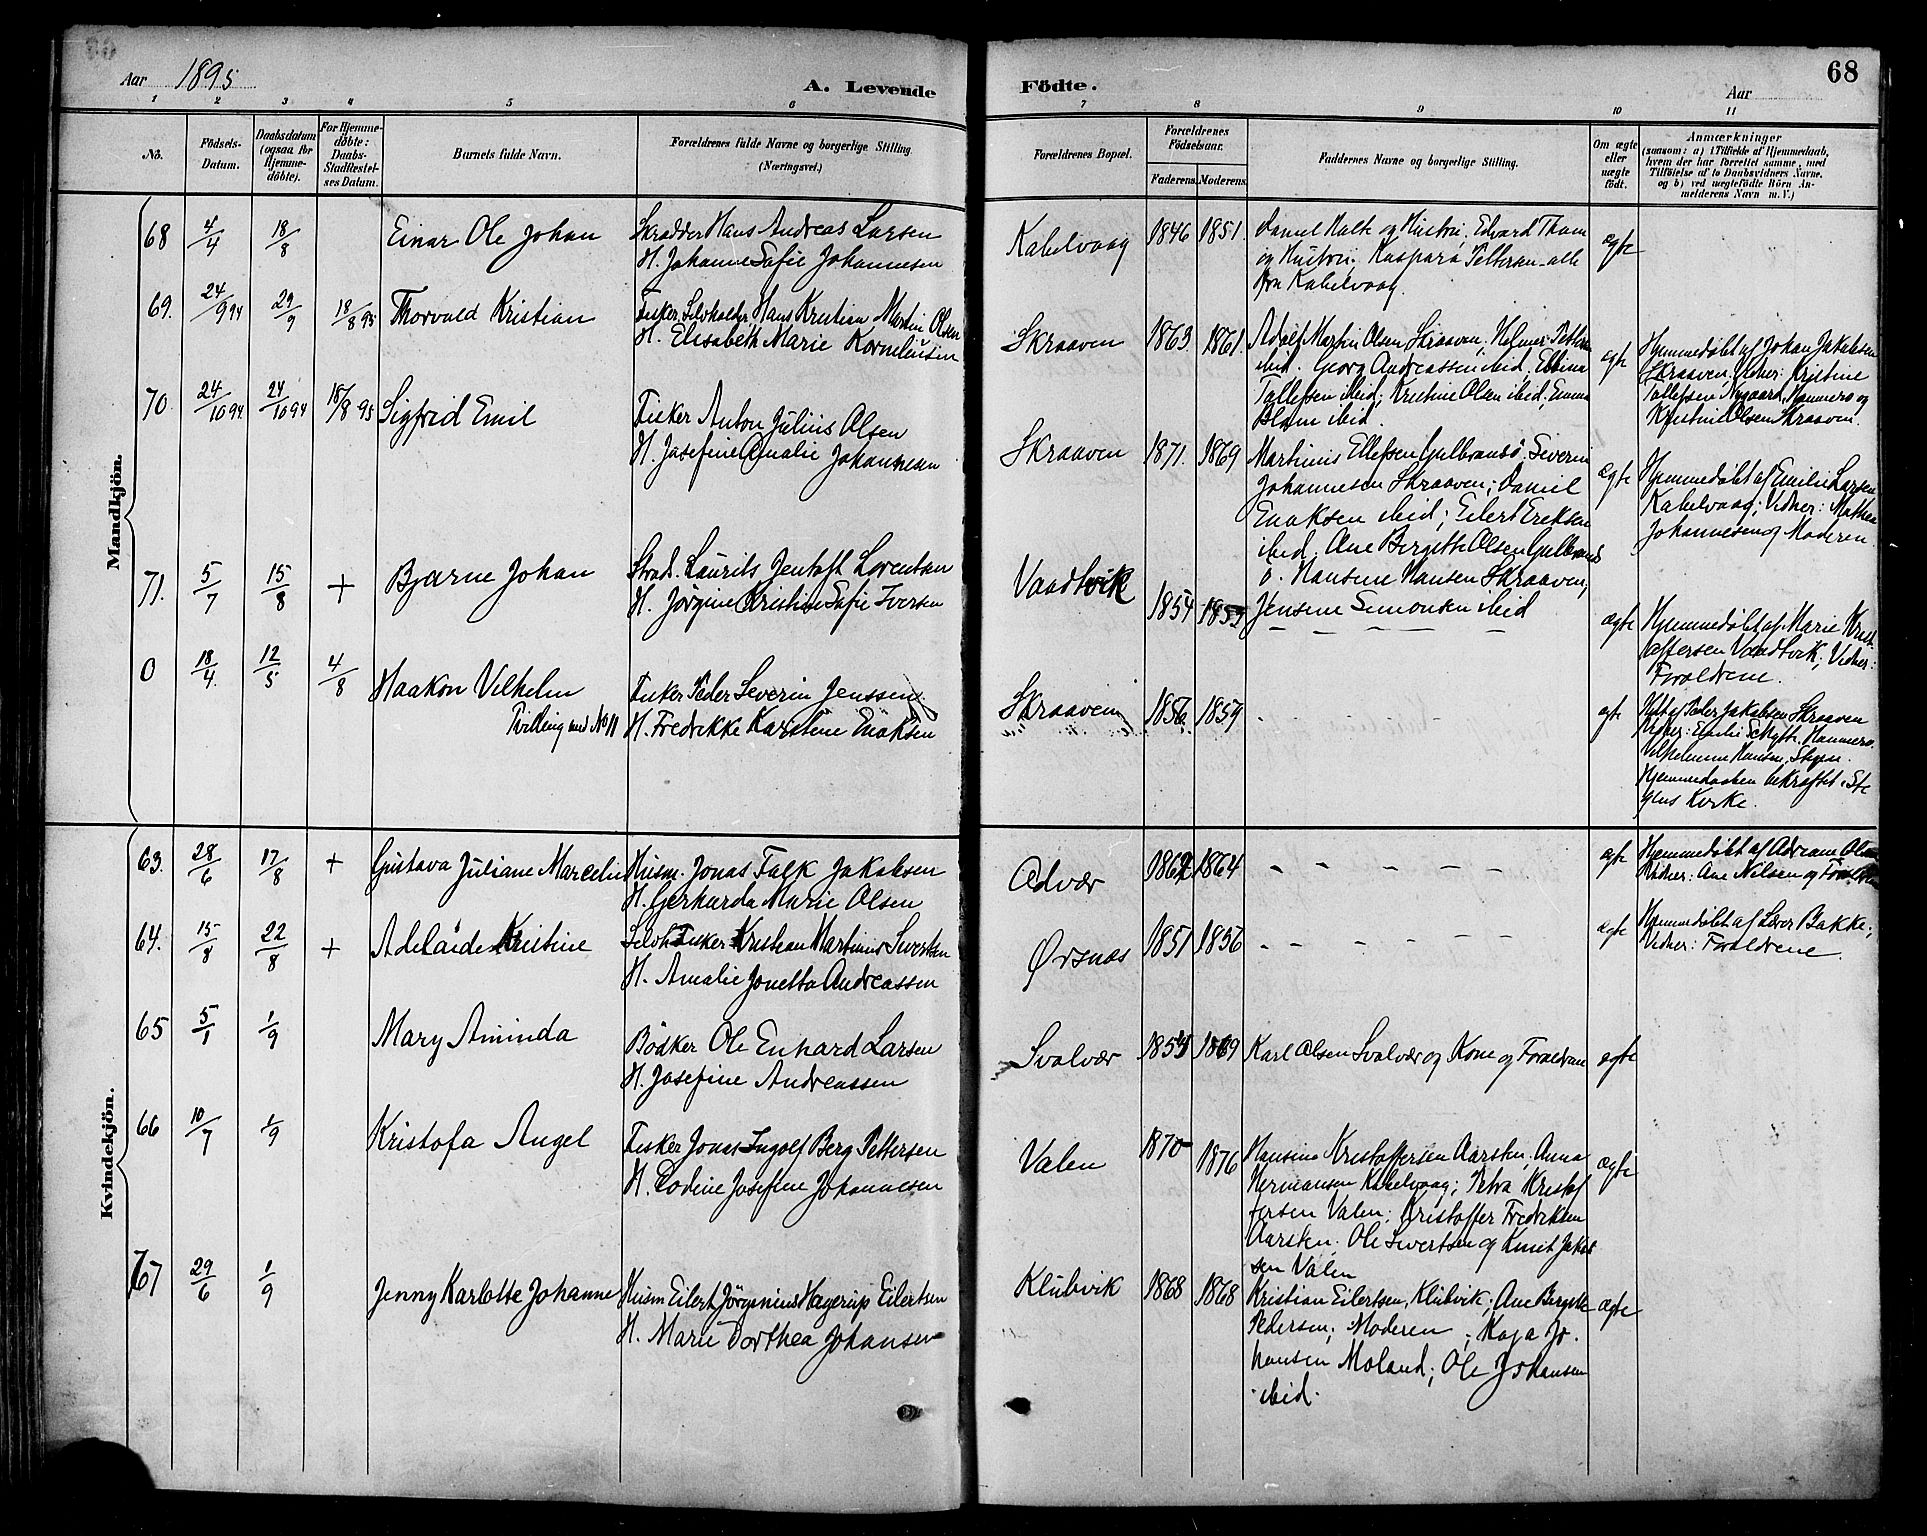 Aar 1895
A. Levende
Fødte.
Aar
68
1 2 3 4 5 6 7 8 9 10 11
No.
Födsels-
Datum.
Daabsdatum
(ogsaa for
Hjemme-
döbte).
For Hjemme-
döbte:
Daabs-
Stadfæstel-
ses Datum.
Barnets fulde Navn.
Forældrenes fulde Navne og borgerlige Stilling
(Næringsvei.)
Forældrenes Bopæl.
Forældrenes
Födselsaar.
Faderens. Moderens.
Faddernes Navne og borgerlige Stilling.
Om ægte
eller
uægte
født.
Anmærkninger
(saasom: a) i Tilfælde af Hjemmedaab,
hvem der har forrettet samme, med
Tilföielse af to Daabsvidners Navne.
og b) ved uægtefödte Börn An-
melderens Navn m. V.)
Mandkjön.
68 4/4 18/8 Einar Ole Johan
Skrædder Hans Andreas Larsen
H. Johanne Sofie Johannesen
Kabelvaag 1846 1851.
Daniel Malte og Hustru, Edvard Tham
og Hustru, Kaspara Pettersen alle
fra Kabelvaag.
ægte
69. 24/9 94 29/9 18/8 95 Thorvald Kristian
Fisker, Selveholder Hans Kristian Martin Olsen
H. Elisabeth Marie Korneliusen
Skraaven 1863 1861.
Adolf Martin Olsen Skraaven, Helmer Pettersen
ibid. Georg Andreassen ibid, Elbina
Tollefsen ibid; Kristine Olsen ibid, Emma
Blom ibid.
ægte
Hjemmedøbt af Johan Jakobsen
Skraaven, Vidner: Kristine
Tollefsen Nygaard, Hammerø og
Kristine Olsen Skraaven.
70. 24/10 94 24/10 94 18/8 95 Sigfrid Emil
Fisker Anton Julius Olsen
H. Josefine Amalie Johannesen
Skraaven 1871. 1869
Martinus Ellefsen Gulbransø, Severin
Johannesen Skraaven; Daniel
Enoksen ibid; Eilert Eriksen
ibid, Ane Bergitte Olsen Gulbrans
ø. Hansine Hansen Skraaven,
Jensine Simonsen ibid
ægte
Hjemmedøbt af Emilie Larsen
Kabelvaag; Vidner: Mathea
Johannesen og Moderen.
71. 5/7 15/8 + Bjarne Johan
Strads. Laurits Jentoft Lorentsen
H. Jorgine Kristine Sofie Iversen
Vaadtvik 1854 1853
– – – – –
ægte
Hjemmedøbt af Marie Krist
offersen Vaadtvik, Vidner:
Forældrene.
0 18/4. 12/5 4/8 Haakon Vilhelm
Tvilling med No 11
Fisker Peder Severin Jenssen
H. Fredrikke Karstine Enoksen
Skraaven 1856. 1859
ægte
Døbt af Peder Jakobsen Skraaven
Vidner: Emilie Schytte, Hammerø.
Vilhelmine Hansen, Stejen.
Hjemmedaaben bekræftet i Ste
gens Kirke.
Kvindekjön.
63. 28/6 17/8 + Gustava Juliane Marcelie
Husm. Jonas Falk Jakobsen
H. Gerharda Marie Olsen
Odvær 1862 1864
– – – – –
ægte
Hjemmedøbt af Adriane Olsen
Vidner: Ane Nilsen og Forældrene
64. 15/8 22/8 + Adelaide Kristine
Selvh. Fisker Kristian Martinus Sivertsen
H. Amalie Jonetta Andreassen
Ørsnæs 1851 1856
– – – – –
ægte
Hjemmedøbt af Sivor Bakke,
Vidner: Forældrene.
65 5/1 1/9 Mary Aminda
Bødker Ole Enhard Larsen
H. Josefine Andreassen
Svolvær 1853 1869
Karl Olsen Svolvær og Kone og Forældrene
ægte
66 10/7 1/9 Kristofa Angel
Fisker Jonas Ingolf Berg Pettersen
H. Dodine Josefine Johannesen
Valen 1870 1876
Hansine Kristoffersen Aarsten, Anna
Hermansen Kabelvaag; Petra Kristof
fersen Valen; Kristoffer Fredriksen
Aarsten, Ole Sivertsen og Knut Jakob
sen Valen
ægte
67 29/6 1/9 Jenny Karlotte Johanne
Husm Eilert Jörginius Hagerup Eilertsen
H. Marie Dorthea Johansen
Klubvik 1868 1868
Kristian Eilertsen, Klubvik, Ane Bergitte
Pedersen; Moderen; Kaja Jo
hansen Moland; Ole Johansen
ibid.
ægte